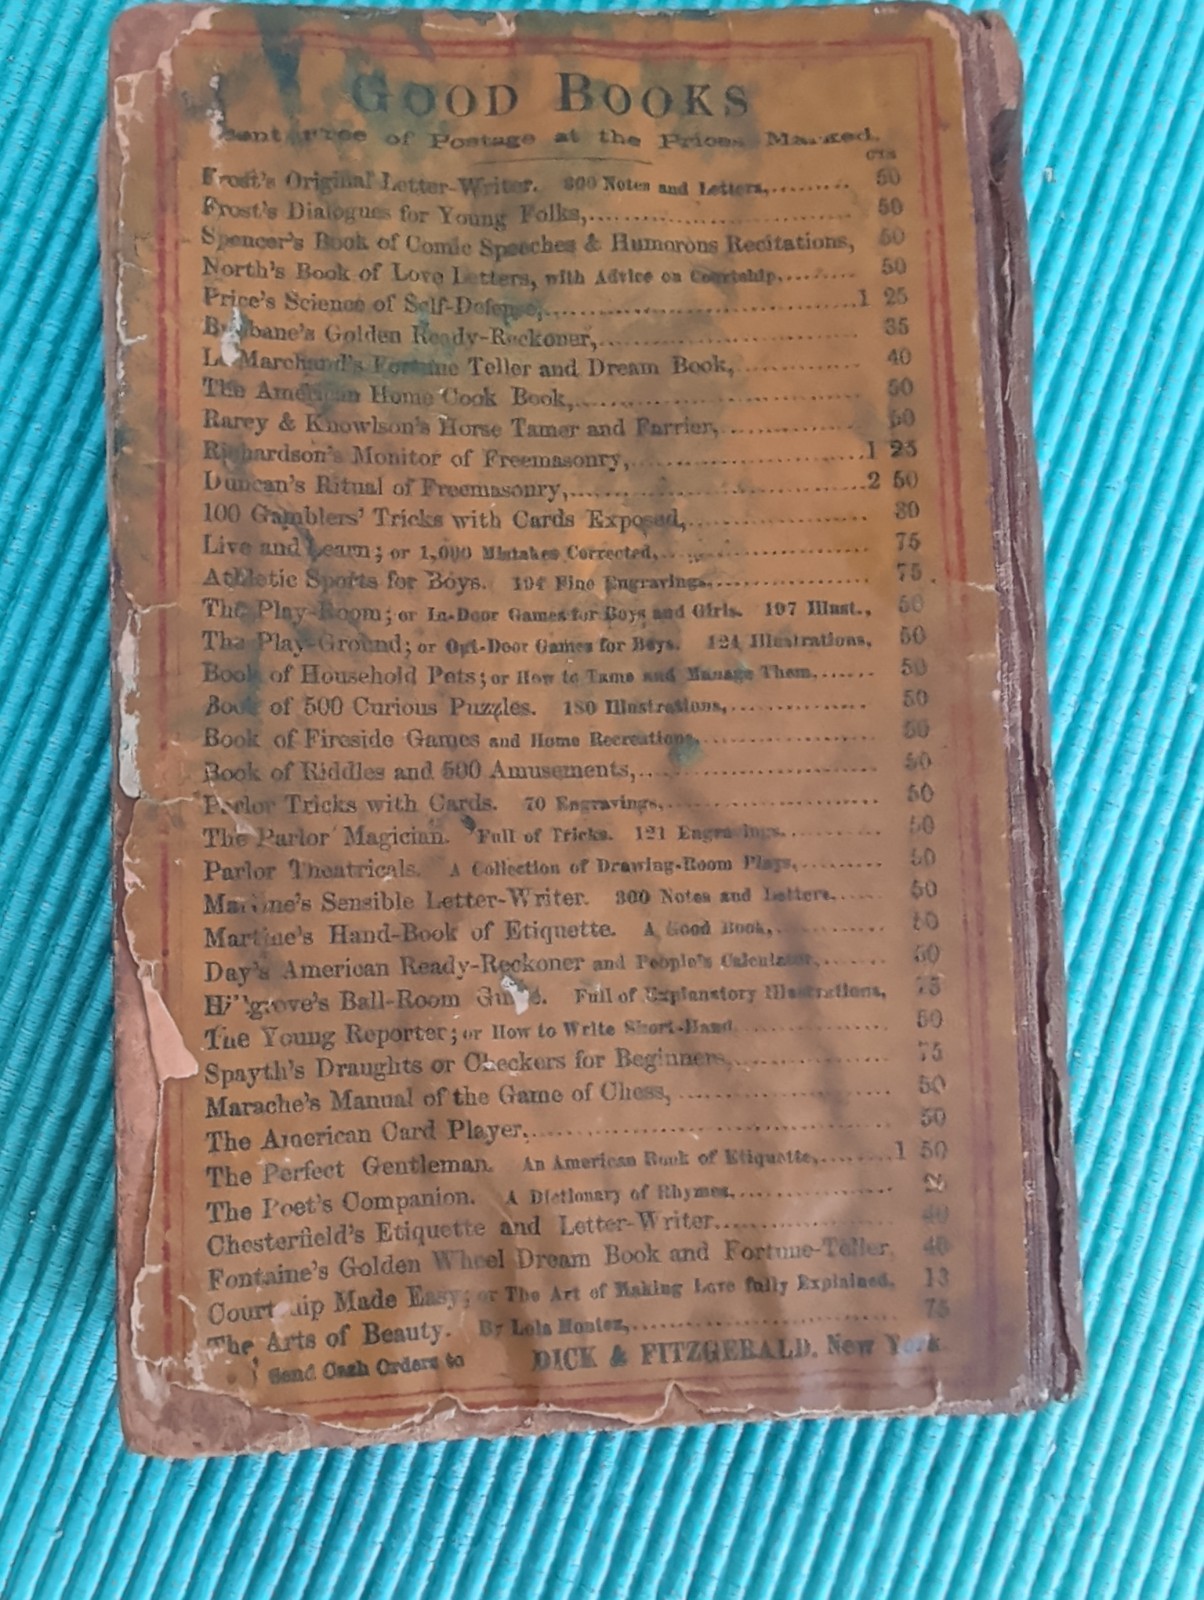 GOOD BOOKS
Sent Free of Postage at the Prices Marked.
cts
Frost's Original Letter-Writer. 300 Notes and Letters,.......... 50
Frost's Dialogues for Young Folks,.............................. 50
Spencer's Book of Comic Speeches & Humorous Recitations, 50
North's Book of Love Letters, with Advice on Courtship,......... 50
Price's Science of Self-Defense,..................................1 25
Brisbane's Golden Ready-Reckoner,............................ 35
Le Marchand's Fortune Teller and Dream Book,............. 40
The American Home Cook Book,............................... 50
Rarey & Knowlson's Horse Tamer and Farrier,............... 50
Richardson's Monitor of Freemasonry,.........................1 25
Duncan's Ritual of Freemasonry,................................2 50
100 Gamblers' Tricks with Cards Exposed,................... 30
Live and Learn; or 1,000 Mistakes Corrected,..................... 75
Athletic Sports for Boys. 194 Fine Engravings,................. 75
The Play-Room; or In-Door Games for Boys and Girls. 197 Illust., 50
The Play-Ground; or Out-Door Games for Boys. 124 Illustrations, 50
Book of Household Pets; or How to Tame and Manage Them,...... 50
Book of 500 Curious Puzzles. 180 Illustrations,............... 50
Book of Fireside Games and Home Recreations,................. 50
Book of Riddles and 500 Amusements,........................ 50
Parlor Tricks with Cards. 70 Engravings,...................... 50
The Parlor Magician. Full of Tricks. 121 Engravings,.......... 50
Parlor Theatricals. A Collection of Drawing-Room Plays,......... 50
Martine's Sensible Letter-Writer. 300 Notes and Letters,..... 50
Martine's Hand-Book of Etiquette. A Good Book,............ 50
Day's American Ready-Reckoner and People's Calculator,...... 50
Hillgrove's Ball-Room Guide. Full of Explanatory Illustrations, 75
The Young Reporter; or How to Write Short-Hand,............. 50
Spayth's Draughts or Checkers for Beginners,............... 75
Marache's Manual of the Game of Chess,..................... 50
The American Card Player,.................................... 50
The Perfect Gentleman. An American Book of Etiquette,........1 50
The Poet's Companion. A Dictionary of Rhymes,...............
Chesterfield's Etiquette and Letter-Writer.................. 40
Fontaine's Golden Wheel Dream Book and Fortune-Teller, 40
Courtship Made Easy; or The Art of Making Love fully Explained, 13
The Arts of Beauty. By Lola Montez,............................ 75
Send Cash Orders to DICK & FITZGERALD, New York.